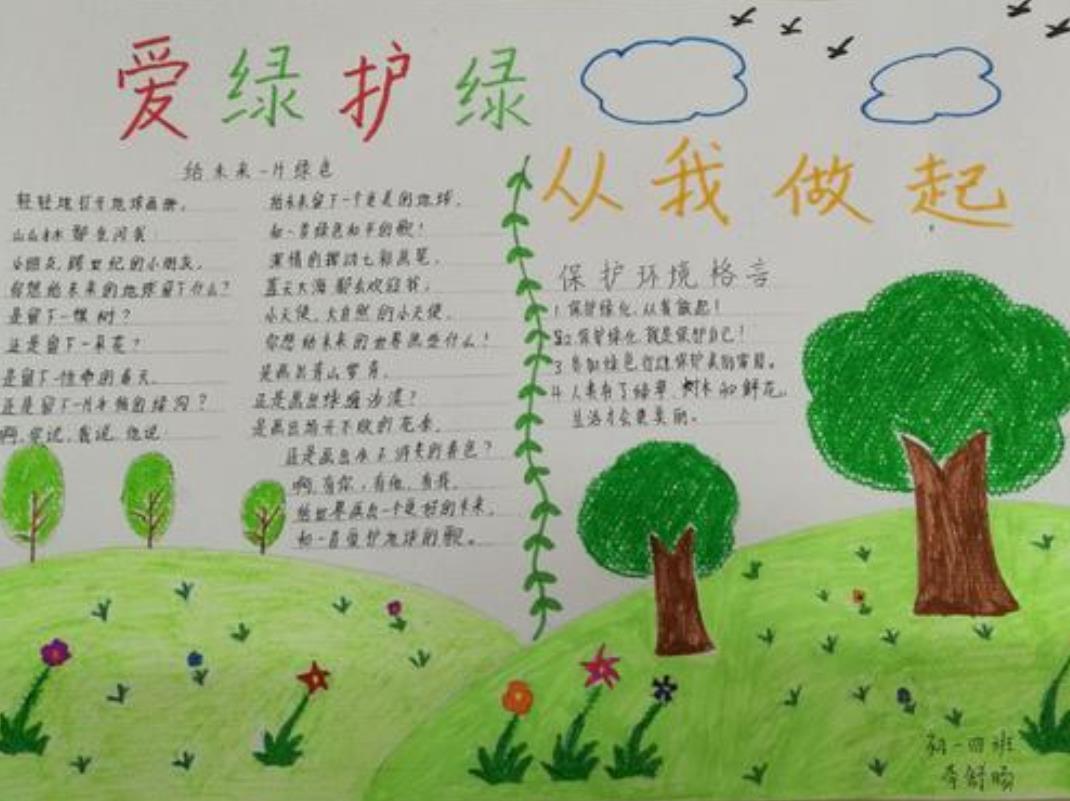 爱绿护绿
从我做起
给未来一片绿色
轻轻地打开地球画册,
山山水水都在问我
小朋友,跨世纪的小朋友,
你想给未来的地球留下什么?
是留下一棵树?
还是留下一朵花?
是留下一个生命的春天,
还是留下一片干枯的绿洲?
啊,你说,我说,他说
给未来留下一个更美的地球,
和一首绿色和平的歌!
深情的挥动七彩画笔,
蓝天大海都会欢迎我,
小天使,大自然的小天使,
你想给未来的世界画些什么!
是画出青山常青,
还是画出绿遍沙漠?
是画出场开不败的花季,
还是画出永不消失的春色?
啊,有你,有他,有我,
给世界画出一个更好的未来,
和一首爱护地球的歌。
保护环境格言
1.保护绿化,从我做起!
2.保护绿化,就是保护自己!
3.参加绿色行动保护美丽家园。
4.人类有了绿草、树木和鲜花,
生活才会更美丽。
初一四班
李舒畅